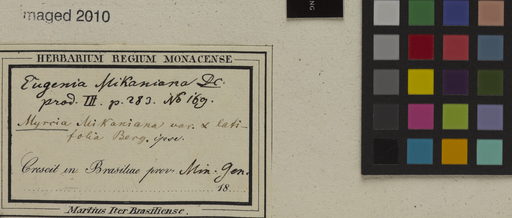 maged 2010
NG
HERBARIUM REGIUM MONACENSE
Eugenia Mikaniana Dc.
prod. III. p. 283. No 169.
Myrcia Mikaniana var. α lati-
folia Berg. ipse.
Crescit in Brasiliae prov. Min. Gen.
18
Martius Iter Brasiliense.